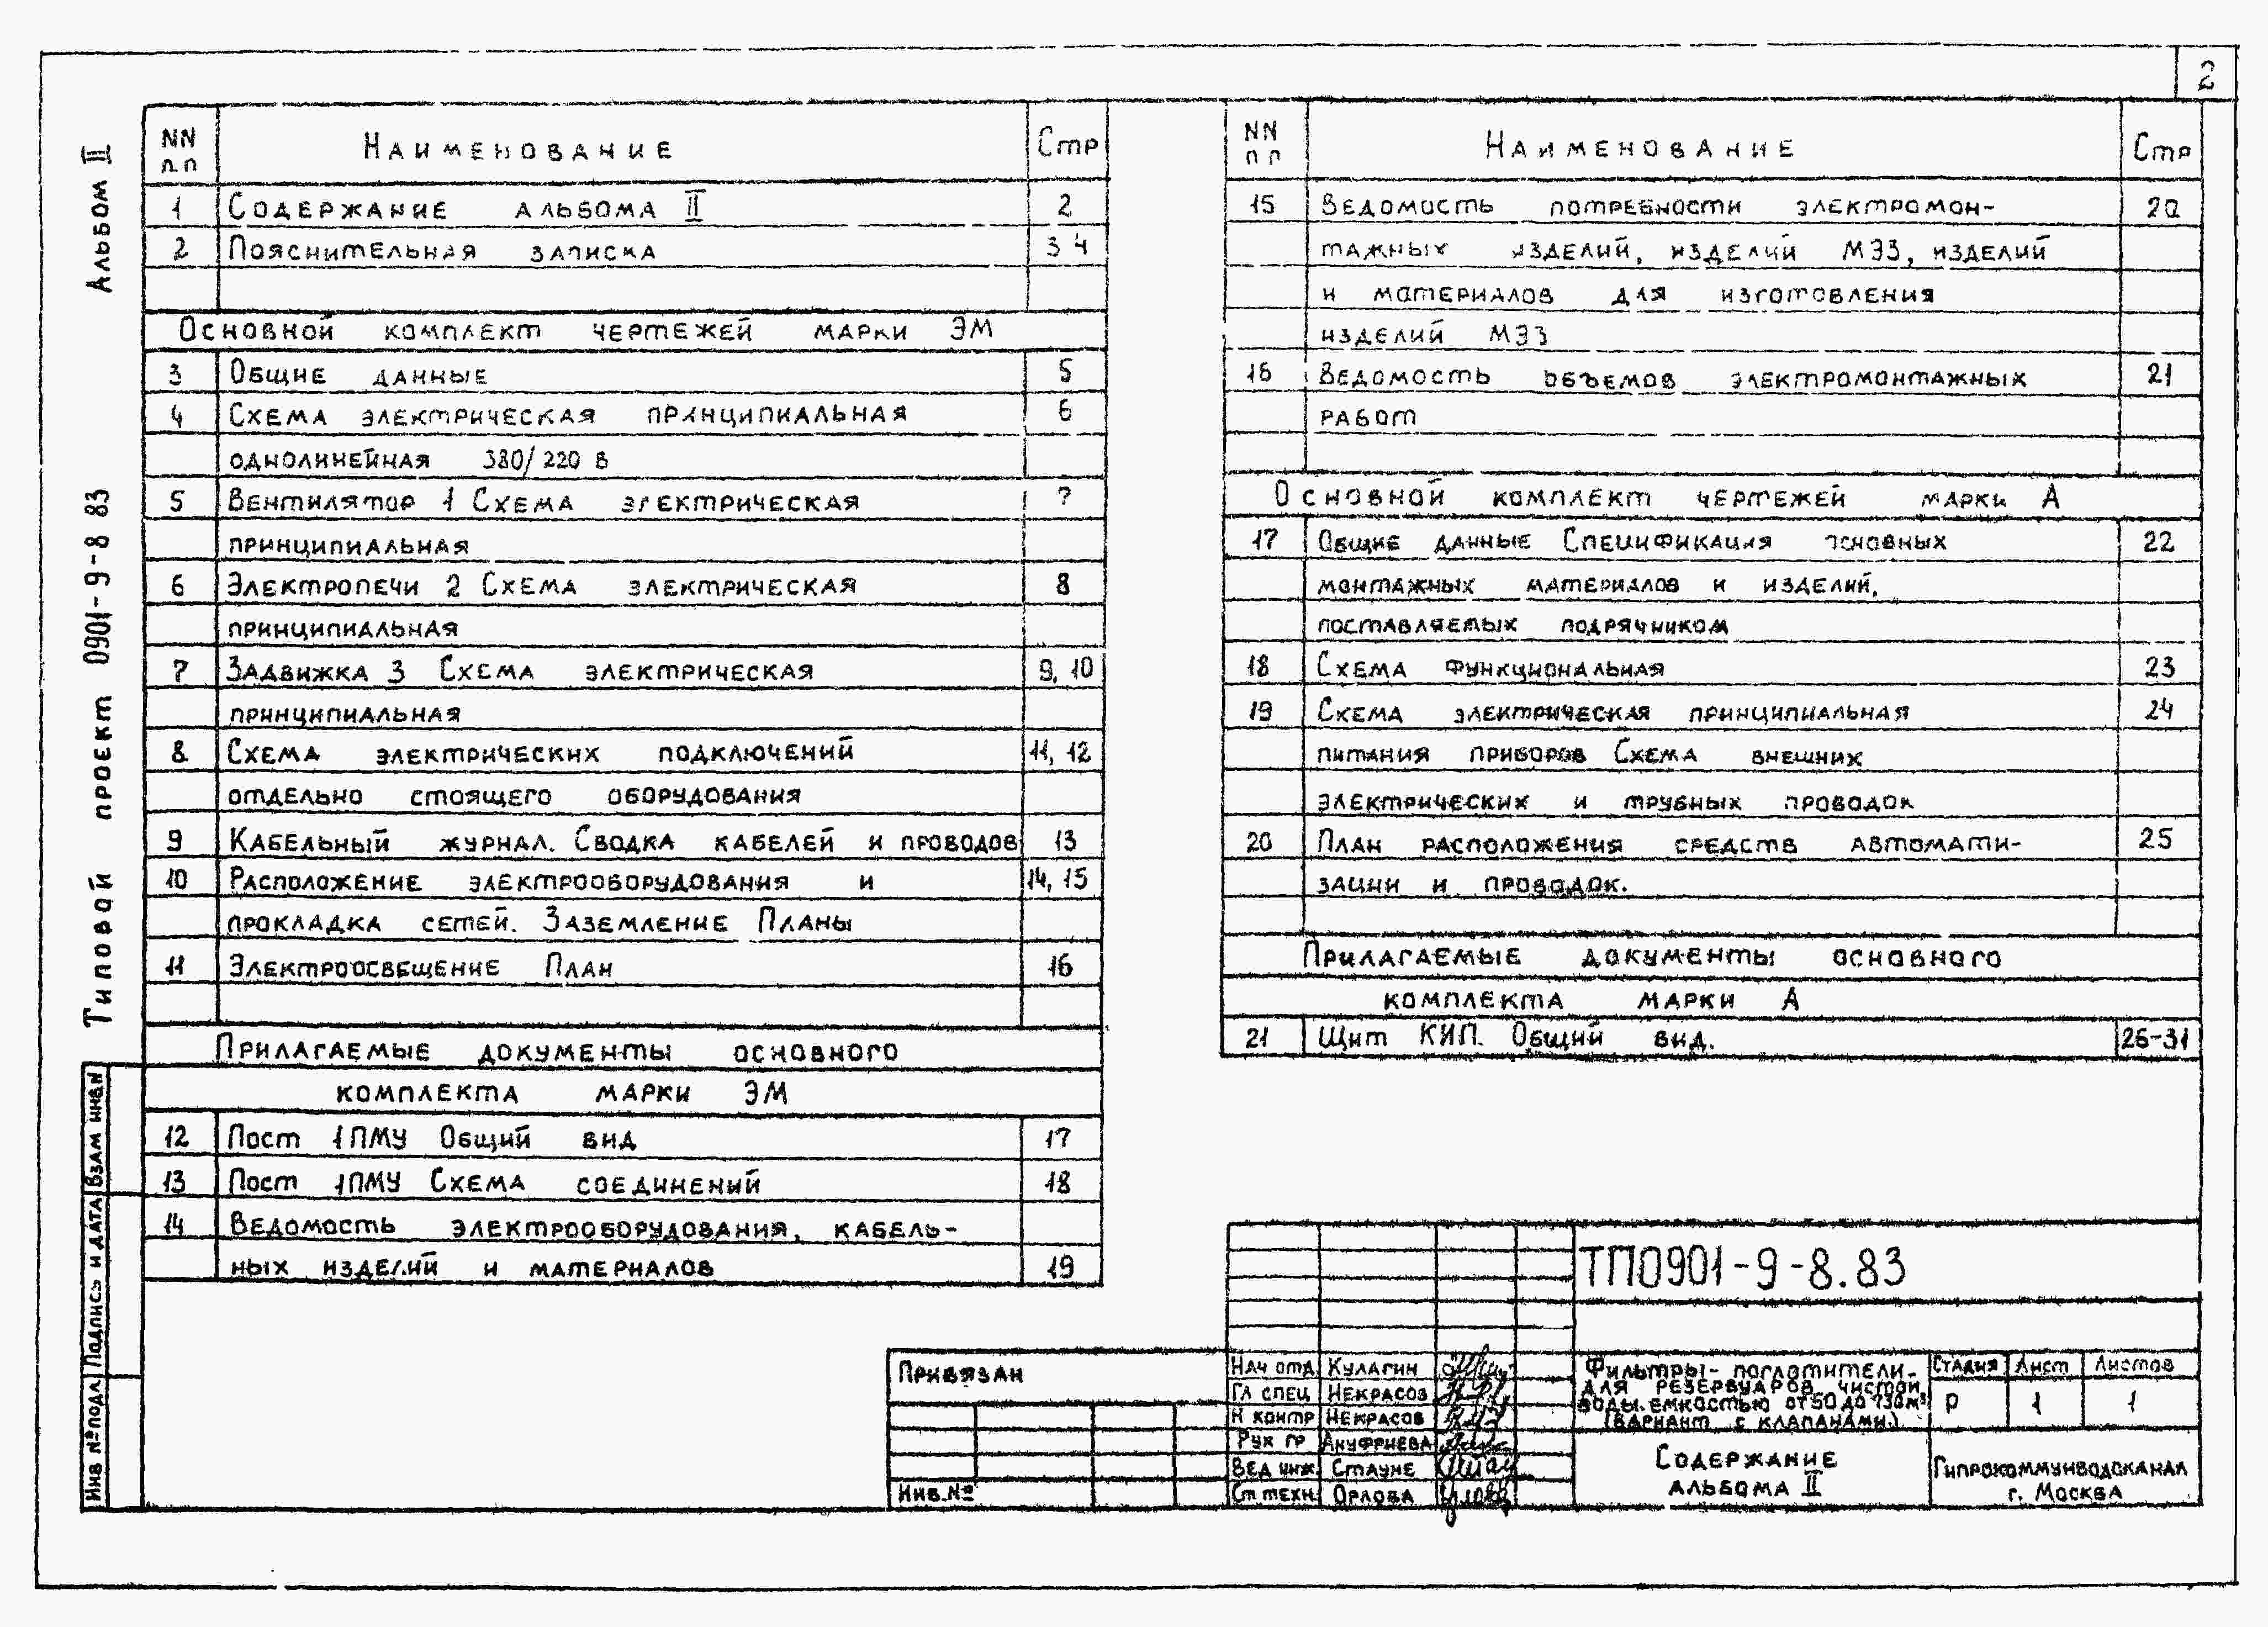 2
Альбом II
Типовой проект 0901-9-8 83
NN п.п Наименование Стр
1 Содержание альбома II 2
2 Пояснительная записка 3 4
Основной комплект чертежей марки ЭМ
3 Общие данные 5
4 Схема электрическая принципиальная 6
однолинейная 380/220 в
5 Вентилятор 1 Схема электрическая 7
принципиальная
6 Электропечи 2 Схема электрическая 8
принципиальная
7 Задвижка 3 Схема электрическая 9, 10
принципиальная
8 Схема электрических подключений 11, 12
отдельно стоящего оборудования
9 Кабельный журнал. Сводка кабелей и проводов 13
10 Расположение электрооборудования и 14, 15
прокладка сетей. Заземление Планы
11 Электроосвещение План 16
Прилагаемые документы основного
комплекта марки ЭМ
12 Пост 1ПМУ Общий вид 17
13 Пост 1ПМУ Схема соединений 18
14 Ведомость электрооборудования, кабель-
ных изделий и материалов 19
NN п п Наименование Стр
15 Ведомость потребности электромон- 20
тажных изделий, изделий МЭЗ, изделий
и материалов для изготовления
изделий МЭЗ
16 Ведомость объемов электромонтажных 21
работ
Основной комплект чертежей марки А
17 Общие данные Спецификация основных 22
монтажных материалов и изделий,
поставляемых подрячником
18 Схема функциональная 23
19 Схема электрическая принципиальная 24
питания приборов Схема внешних
электрических и трубных проводок
20 План расположения средств автомати- 25
зации и проводок.
Прилагаемые документы основного
комплекта марки А
21 Щит КИП. Общий вид. 26-31
Инв №подл Подпись и дата Взам инвN
Привязан
Инв.№
ТП0901-9-8.83
Нач отд. Кулагин
Гл спец Некрасов
Н контр Некрасов
Рук гр Ануфриева
Вед инж. Стауне
Ст техн. Орлова
Фильтры-поглотители
для резервуаров чистой
воды емкостью от 50 до м³
(вариант с клапанами)
Стадия Лист Листов
Р 1 1
Содержание
альбома II
Гипрокоммунводоканал
г. Москва